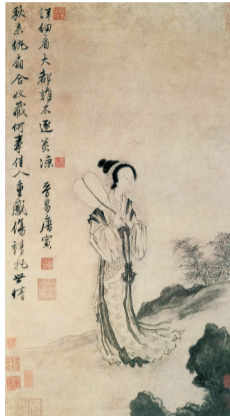 秋來紈扇合收藏何事佳人重感傷請把世情
詳細看大都誰不逐炎涼 晉昌唐寅